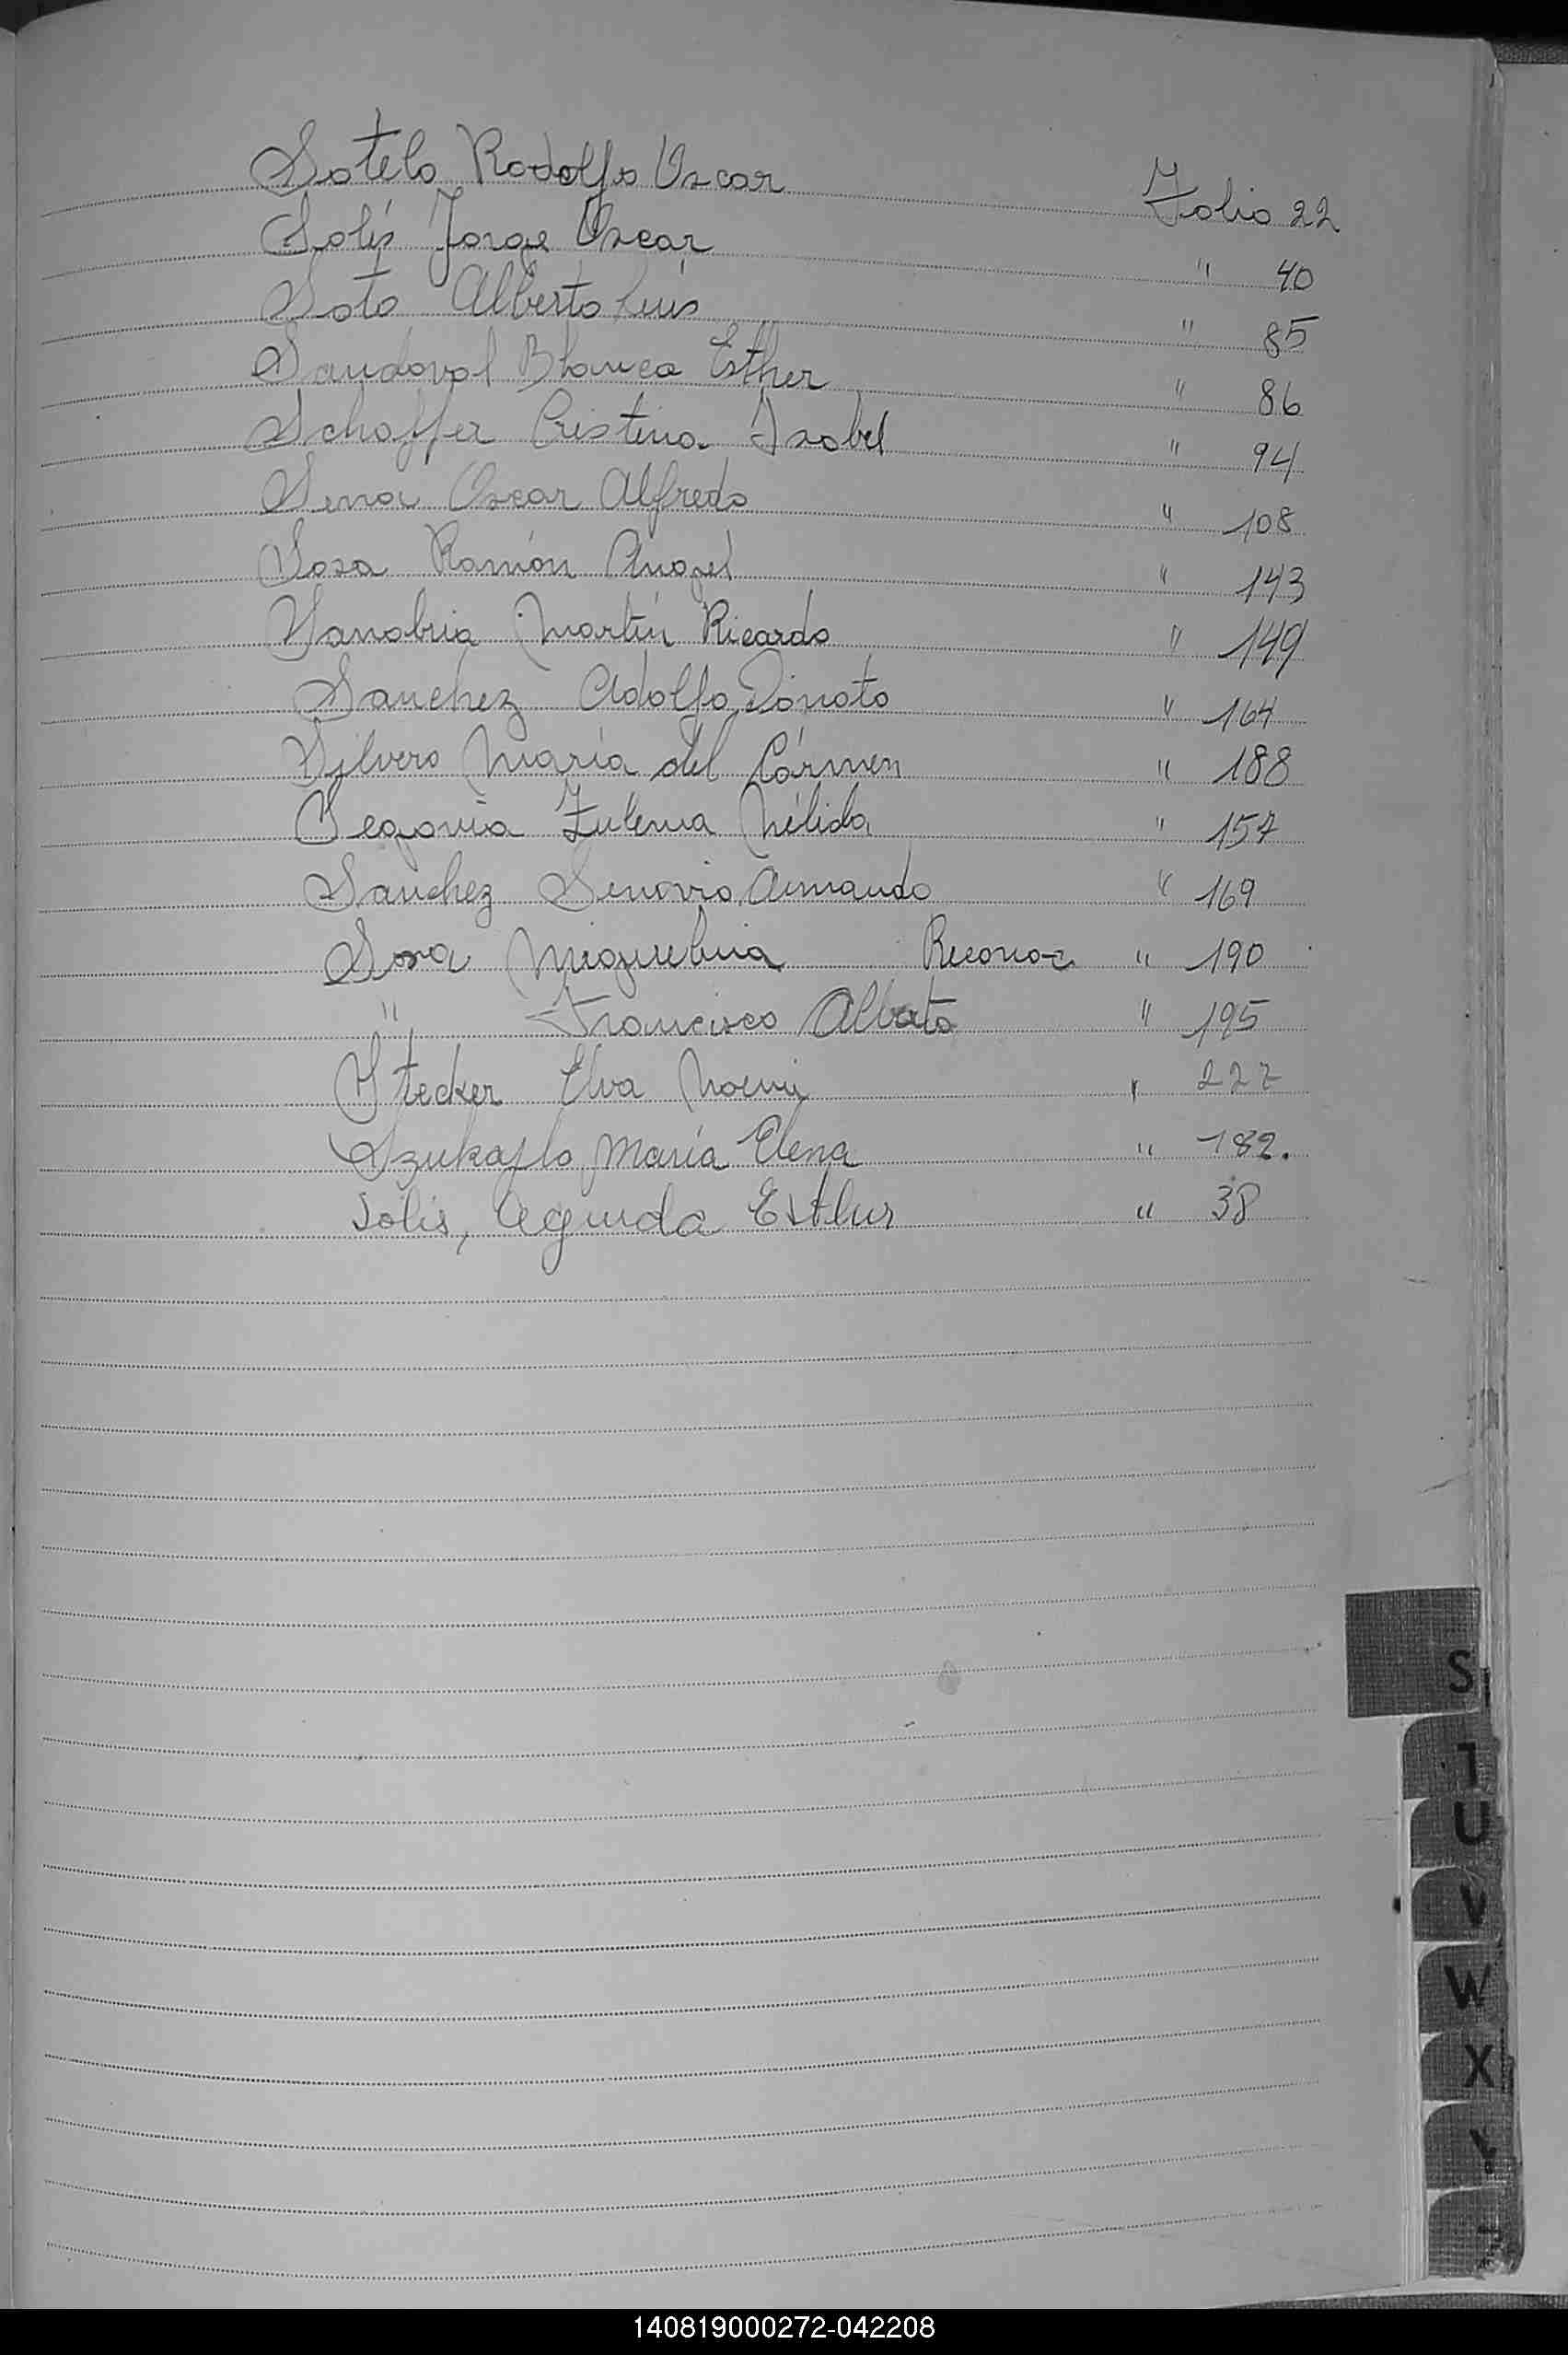 Sotelo Rodolfo Oscar Folio 22
Solís Jorge Oscar " 40
Soto Alberto Luis " 85
Sandoval Blanca Esther " 86
Schaffer Cristina Isabel " 94
Sena Oscar Alfredo " 108
Sosa Ramón Angel " 143
Sanabria Martín Ricardo " 149
Sanchez Adolfo Donato " 164
Silvero María del Cármen " 188
Segovia Zulema Nélida " 157
Sanchez Senovio Armando " 169
Sosa Miguelina Reconoc " 190
" Francisco Alberto " 195
Stecker Elva Noemi " 227
Szukajlo María Elena " 182.
Solis, Esther " 38
S
T
U
V
W
X
Y
140819000272-042208